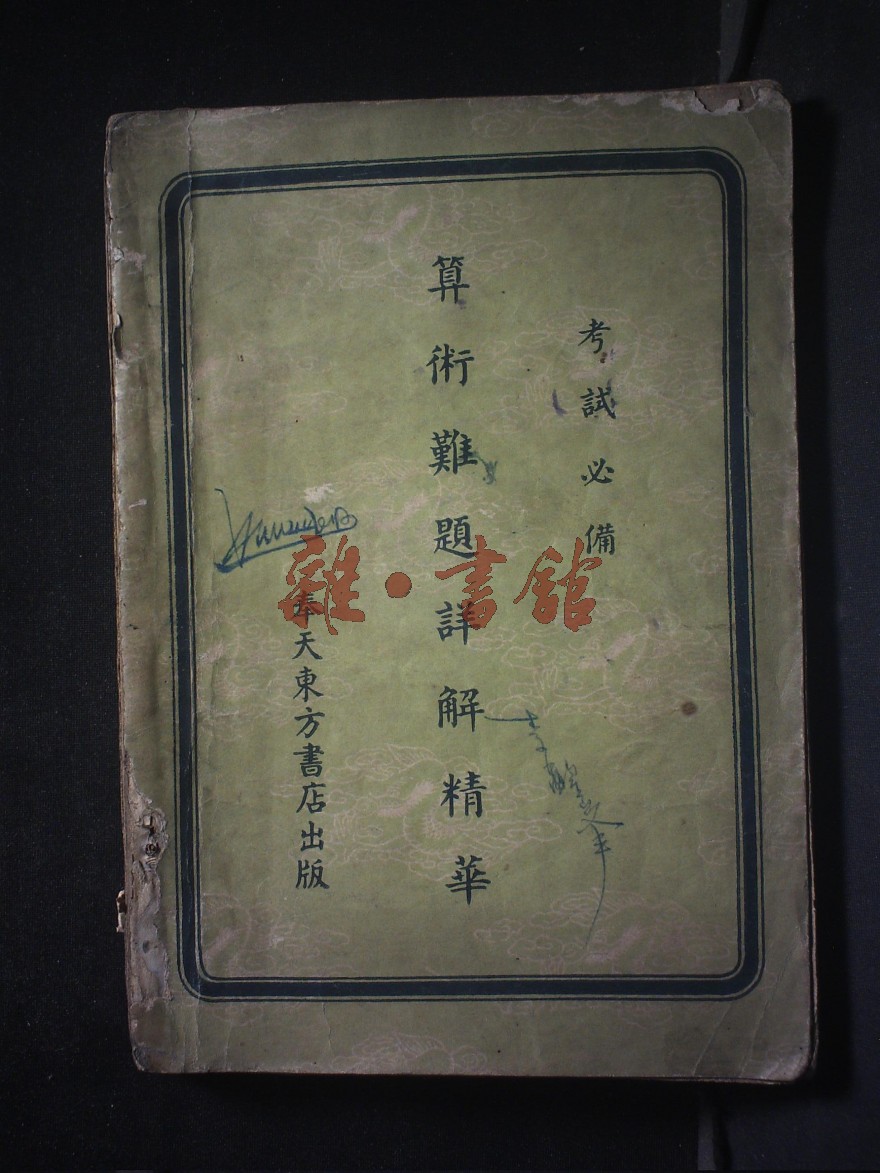 考試必備
算術難題詳解精華
奉天東方書店出版
雜·書館